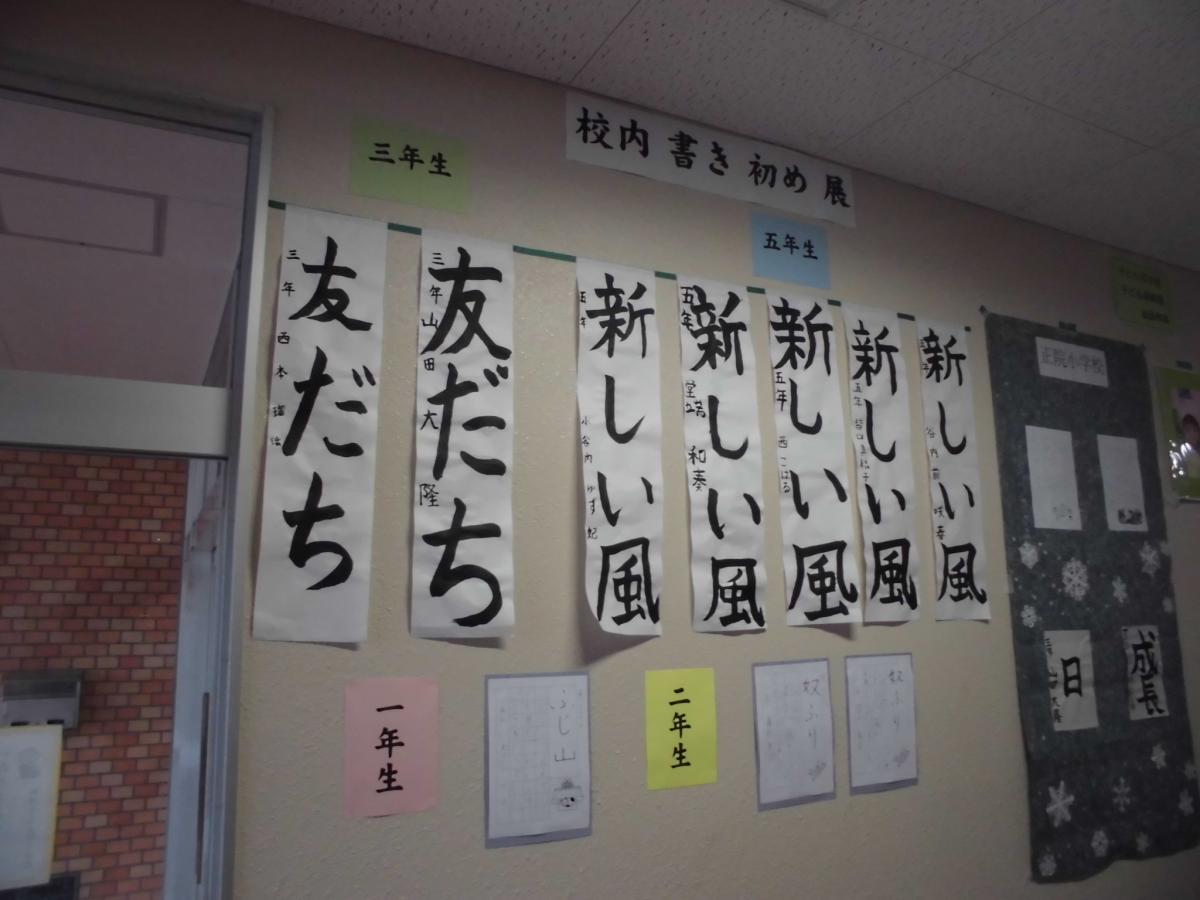 校内 書き初め 展
三年生
五年生
友だち
三年 西本
友だち
三年 山田 大隆
新しい風
五年 小谷内 ゆず妃
新しい風
五年 和奏
新しい風
五年 西 こはる
新しい風
五年
新しい風
谷内前 咲春
一年生
ふじ山
二年生
奴ふり
奴ふり
正院小学校
日
成長